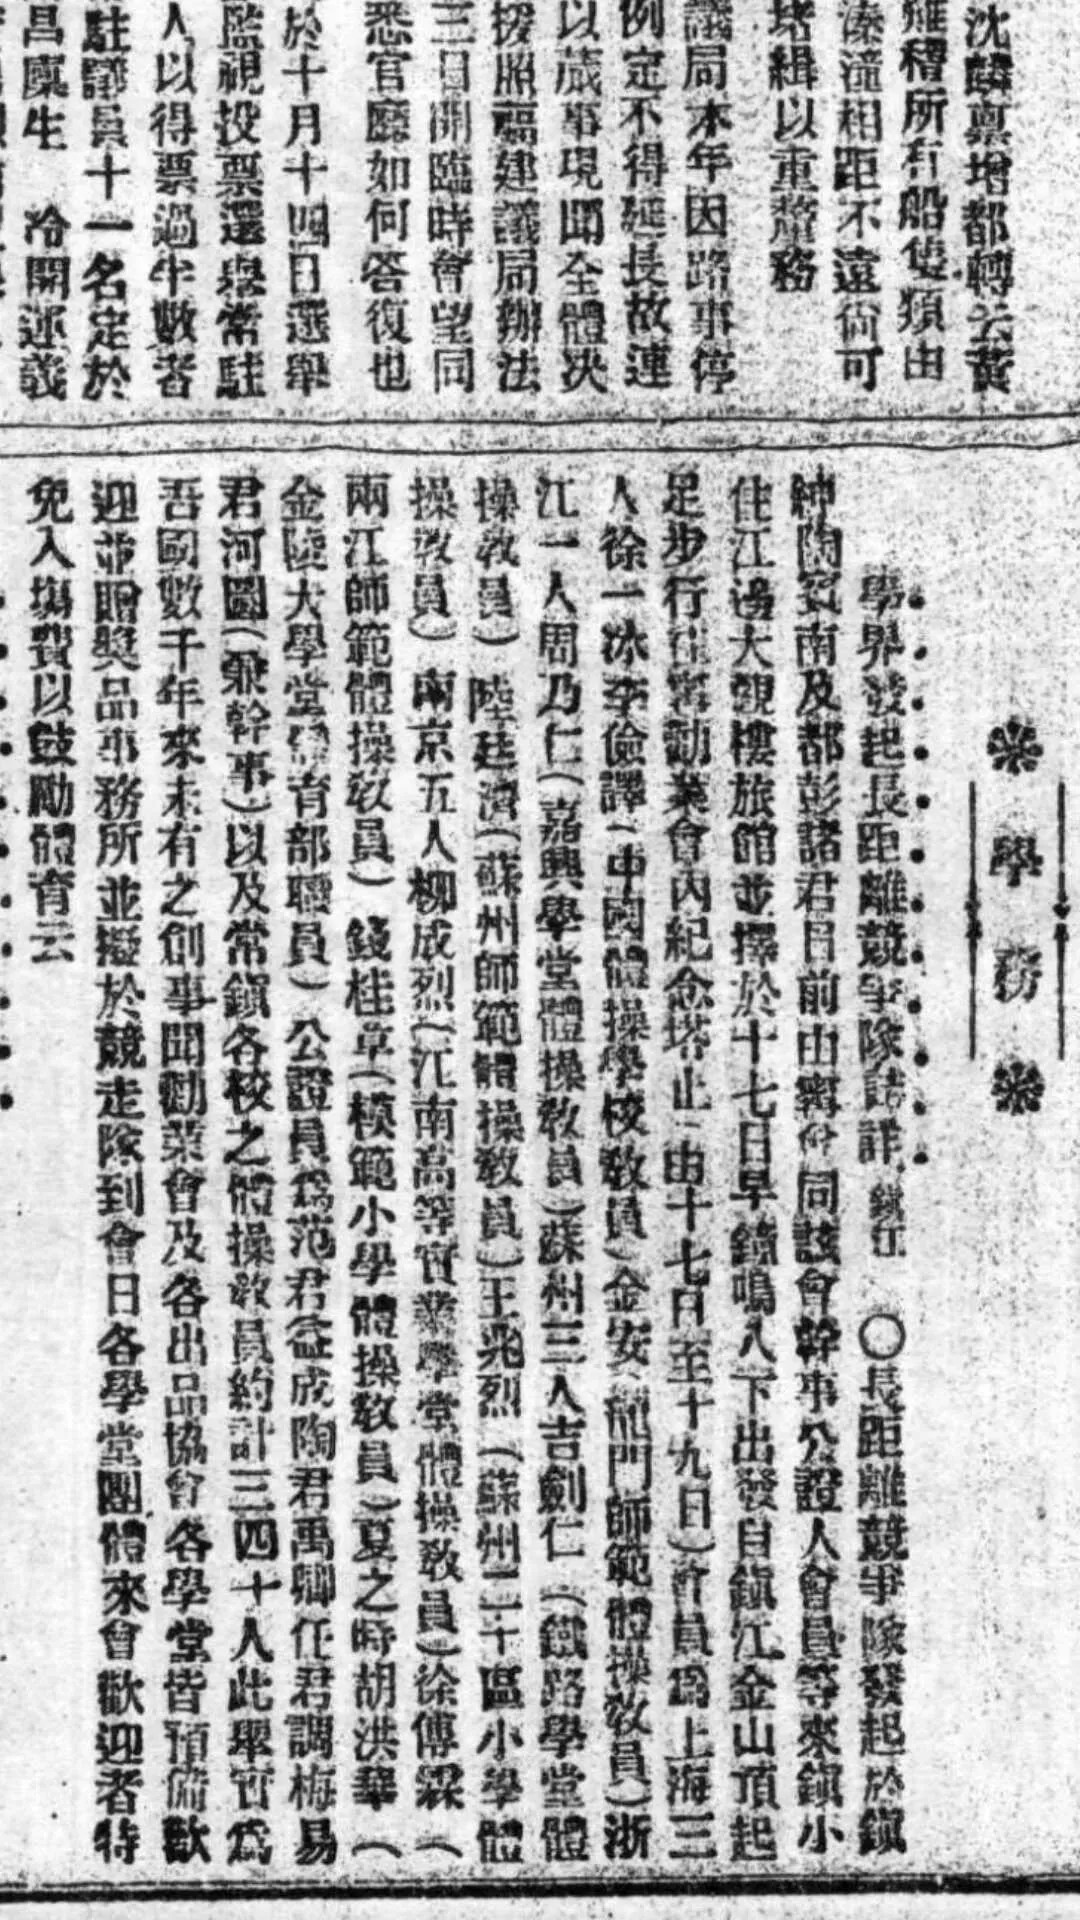 沈麟禀增都轉云黃
雉糟所有船隻類由
溱潼相距不遠尙可
堵緝以重鹺務
議局本年因路事停
例定不得延長故連
以蕆事現聞全體决
援照福建議局辦法
三日開臨時會望同
悉官廳如何答復也
於十月十四日選舉
監視投票選舉常駐
人以得票過半數者
駐議員十一名定於
昌廩生　冷開運議
學務
學界發起長距離競爭隊誌詳 鎮江　〇長距離競爭隊發起於鎭
紳陶安南及都彭諸君日前由寗會同該會幹事公證人會員等來鎭小
住江邊大觀樓旅館並擇於十七日早鐘鳴八下出發自鎭江金山頂起
足步行往寗勸業會內紀念塔止由十七日至十九日）會員爲上海三
人徐一冰李儉譯（中國體操學校敎員）金安（龍門師範體操敎員）浙
江一人周乃仁（嘉興學堂體操敎員）蘇州三人吉劍仁（鐵路學堂體
操敎員）陸廷濟（蘇州師範體操敎員）王兆烈（蘇州二十區小學體
操敎員）南京五人柳成烈（江南高等實業學堂體操敎員）徐傅霖（
兩江師範體操敎員）錢桂章（模範小學體操敎員）夏之時胡洪華（
金陵大學堂體育部職員）公證員爲范君益成陶君禹卿任君調梅易
君河圖（兼幹事）以及常鎭各校之體操敎員約計三四十人此舉實爲
吾國數千年來未有之創事聞勸業會及各出品協會各學堂皆預備歡
迎並贈獎品事務所並擬於競走隊到會日各學堂團體來會歡迎者特
免入塲費以鼓勵體育云